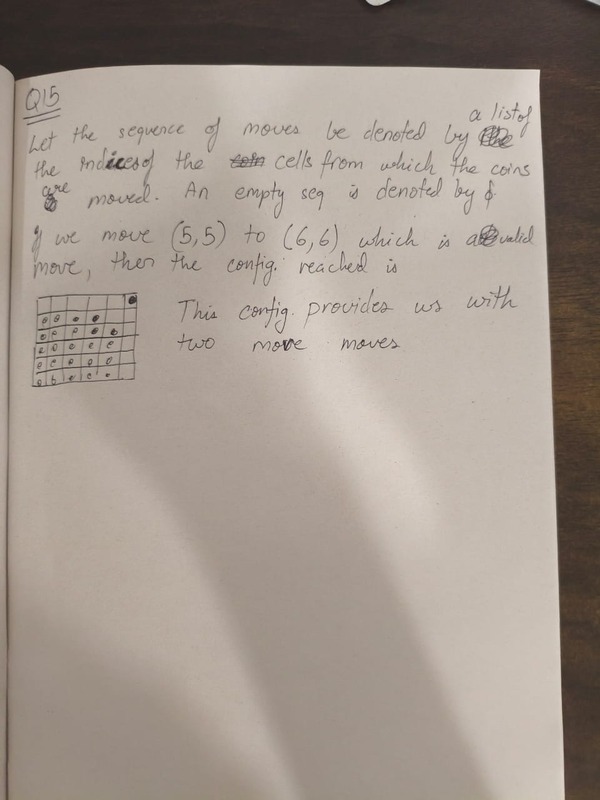 Q15
a list of
Let the sequence of moves be denoted by
the indices of the cells from which the coins
are moved. An empty seq is denoted by ϕ.
If we move (5,5) to (6,6) which is a valid
move, then the config. reached is
This config. provides us with
two move moves